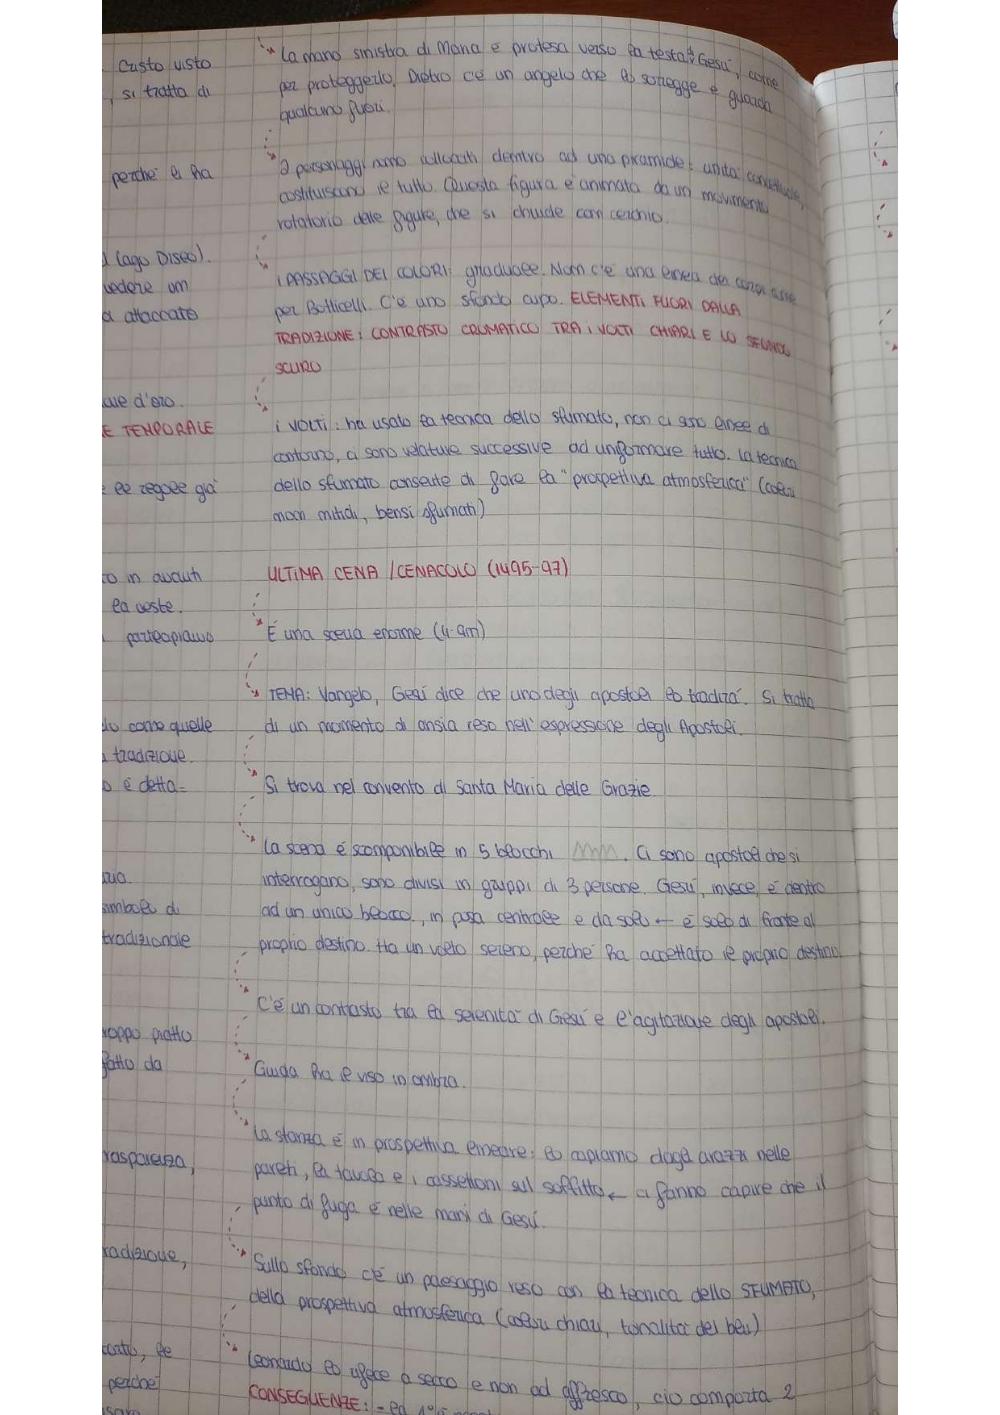 Custo visto
, si tratta di
perché le ha
(lago Diseo).
vedere un
a attaccato
ave d'oro.
E TEMPORALE
e le regole già
to in avanti
la veste.
partecipiamo
do come quelle
a tradizione.
o è detta-
simboli di
tradizionale
troppo piatto
fatto da
trasparenza,
tradizione,
perché
La mano sinistra di Maria è protesa verso la testa di Gesù, come
per proteggerlo. Dietro c'è un angelo che lo sorregge e guarda
qualcuno fuori.
I personaggi sono collocati dentro ad una piramide: unità
costituiscono il tutto. Questa figura è animata da un movimento
rotatorio delle figure, che si chiude con cerchio.
i PASSAGGI DEI COLORI: graduale. Non c'è una linea di come
per Botticelli. C'è uno sfondo cupo. ELEMENTI FUORI DALLA
TRADIZIONE: CONTRASTO CROMATICO TRA i VOLTI CHIARI E LO SFONDO
SCURO
i VOLTI: ha usato la tecnica dello sfumato, non ci sono linee di
contorno, ci sono velature successive ad uniformare tutto. La tecnica
dello sfumato consente di fare la "prospettiva atmosferica" (colori
non nitidi, bensì sfumati)
ULTIMA CENA / CENACOLO (1495-97)
È una scena enorme (4·9m)
TEMA: Vangelo, Gesù dice che uno degli apostoli lo tradirà. Si tratta
di un momento di ansia reso nell'espressione degli Apostoli.
Si trova nel convento di Santa Maria delle Grazie.
La scena è scomponibile in 5 blocchi. Ci sono apostoli che si
interrogano, sono divisi in gruppi di 3 persone, Gesù, invece, è dentro
ad un unico blocco, in posa centrale e da solo ← è solo di fronte al
proprio destino. Ha un volto sereno, perché ha accettato il proprio destino.
C'è un contrasto tra la serenità di Gesù e l'agitazione degli apostoli.
Giuda ha il viso in ombra.
La stanza è in prospettiva lineare: lo capiamo dagli arazzi nelle
pareti, la tavola e i cassettoni sul soffitto ← ci fanno capire che il
punto di fuga è nelle mani di Gesù.
Sullo sfondo c'è un paesaggio reso con la tecnica dello SFUMATO,
della prospettiva atmosferica (colori chiari, tonalità del blu)
Leonardo lo fece a secco e non ad affresco, ciò comporta 2
CONSEGUENZE: - la 1ª è